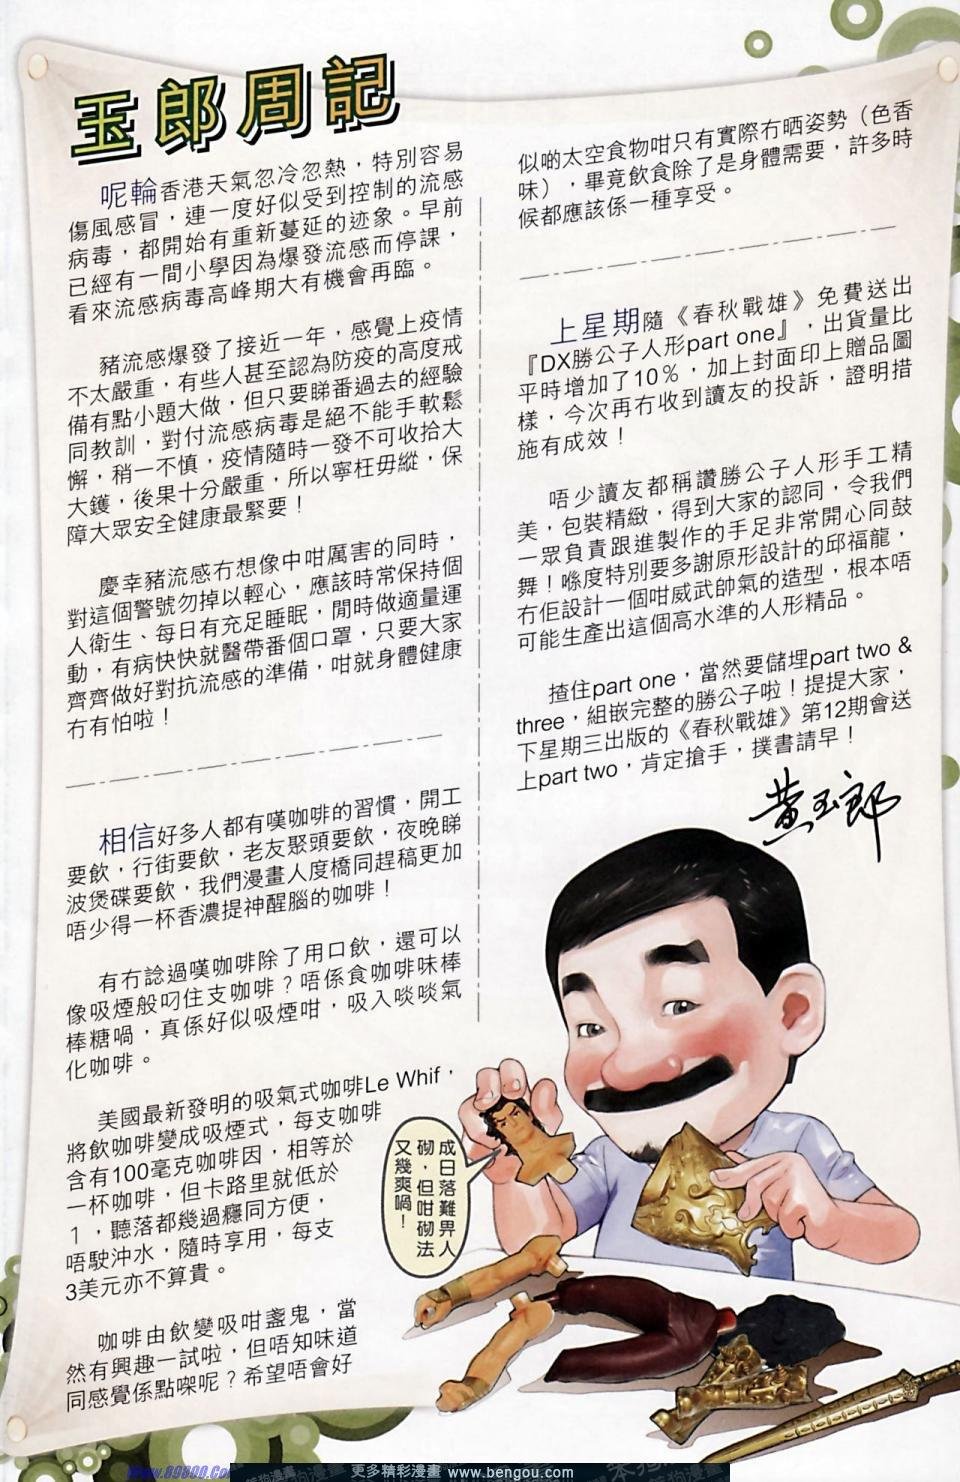 玉郎周記
呢輪香港天氣忽冷忽熱，特別容易
傷風感冒，連一度好似受到控制的流感
病毒，都開始有重新蔓延的迹象。早前
已經有一間小學因為爆發流感而停課，
看來流感病毒高峰期大有機會再臨。
豬流感爆發了接近一年，感覺上疫情
不太嚴重，有些人甚至認為防疫的高度戒
備有點小題大做，但只要睇番過去的經驗
同教訓，對付流感病毒是絕不能手軟鬆
懈，稍一不慎，疫情隨時一發不可收拾大
大鑊，後果十分嚴重，所以寧枉毋縱，保
障大眾安全健康最緊要！
慶幸豬流感冇想像中咁厲害的同時，
對這個警號勿掉以輕心，應該時常保持個
人衛生、每日有充足睡眠，閒時做適量運
動，有病快快就醫帶番個口罩，只要大家
齊齊做好對抗流感的準備，咁就身體健康
冇有怕啦！
相信好多人都有嘆咖啡的習慣，開工
要飲，行街要飲，老友聚頭要飲，夜晚睇
波煲碟要飲，我們漫畫人度橋同趕稿更加
唔少得一杯香濃提神醒腦的咖啡！
有冇諗過嘆咖啡除了用口飲，還可以
像吸煙般叼住支咖啡？唔係食咖啡味棒
棒糖喎，真係好似吸煙咁，吸入啖啖氣
化咖啡。
美國最新發明的吸氣式咖啡Le Whif，
將飲咖啡變成吸煙式，每支咖啡
含有100毫克咖啡因，相等於
一杯咖啡，但卡路里就低於
1，聽落都幾過癮同方便，
唔駛沖水，隨時享用，每支
3美元亦不算貴。
咖啡由飲變吸咁盞鬼，當
然有興趣一試啦，但唔知味道
同感覺係點㗎呢？希望唔會好
似啲太空食物咁只有實際冇晒姿勢（色香
味），畢竟飲食除了是身體需要，許多時
候都應該係一種享受。
上星期隨《春秋戰雄》免費送出
『DX勝公子人形part one』，出貨量比
平時增加了10％，加上封面印上贈品圖
樣，今次再冇收到讀友的投訴，證明措
施有成效！
唔少讀友都稱讚勝公子人形手工精
美，包裝精緻，得到大家的認同，令我們
一眾負責跟進製作的手足非常開心同鼓
舞！喺度特別要多謝原形設計的邱福龍，
冇佢設計一個咁威武帥氣的造型，根本唔
可能生產出這個高水準的人形精品。
揸住part one，當然要儲埋part two &
three，組嵌完整的勝公子啦！提提大家，
下星期三出版的《春秋戰雄》第12期會送
上part two，肯定搶手，撲書請早！
黃玉郎
成日落難畀人
砌，但咁砌法
又幾爽喎！
www.89890.Com
更多精彩漫畫 www.bengou.com